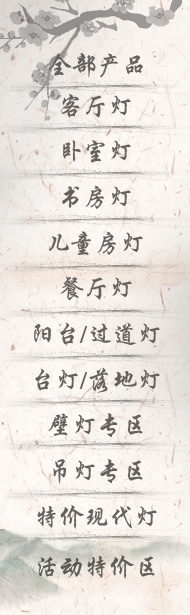 全部产品
客厅灯
卧室灯
书房灯
儿童房灯
餐厅灯
阳台/过道灯
台灯/落地灯
壁灯专区
吊灯专区
特价现代灯
活动特价区